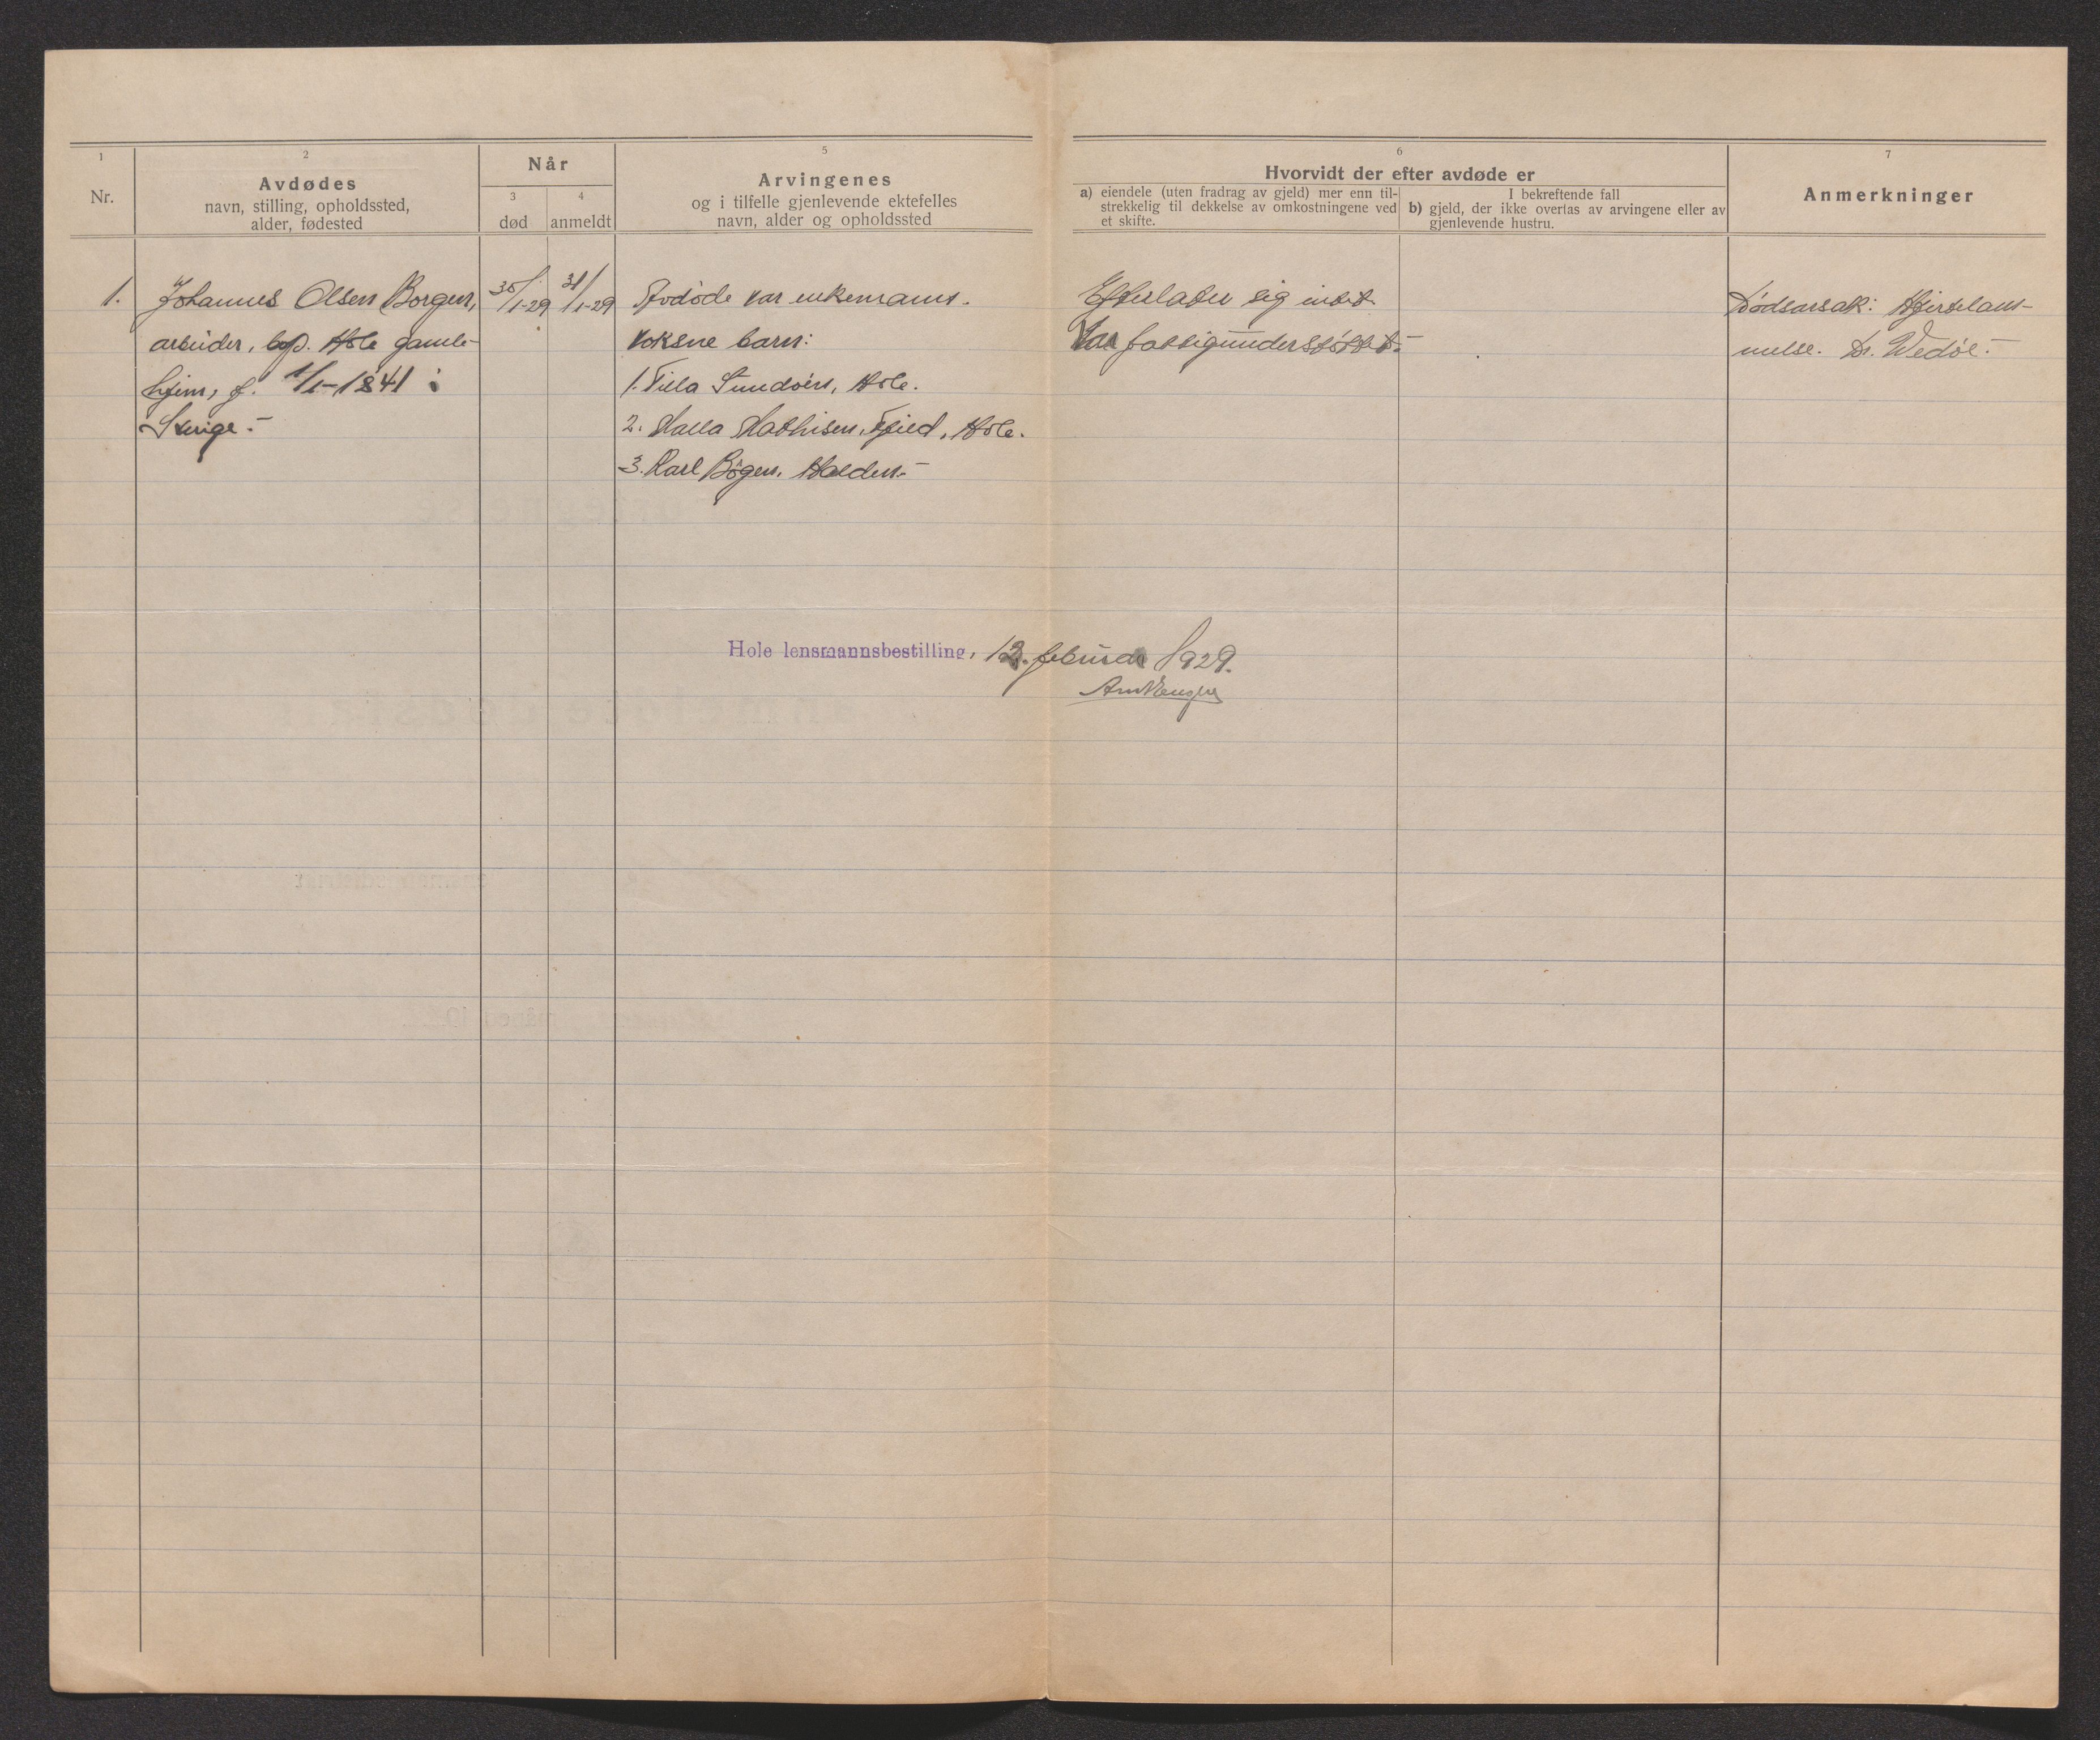 1
Nr.
2
Avdødes
navn, stilling, opholdssted,
alder, fødested
Når
3
død
4
anmeldt
5
Arvingenes
og i tilfelle gjenlevende ektefelles
navn, alder og opholdssted
6
Hvorvidt der efter avdøde er
a) eiendele (uten fradrag av gjeld) mer enn til-
strekkelig til dekkelse av omkostningene ved
et skifte.
I bekreftende fall
b) gjeld, der ikke overtas av arvingene eller av
gjenlevende hustru.
7
Anmerkninger
1.
Johannes Olsen Borgen,
arbeider, bop. Hole gamle-
hjem, f. 1/1-1841 i
Sverige.-
30/1-29
31/1-29
Avdøde var enkemann.
Voksne barn:
1. Sundøen, Hole.
2. Mathisen, Fjeld, Hole.
3. Karl Halden.-
Efterlater sig intet.
Var fattigunderstøttet.-
Dødsårsak: Hjertelam-
melse. Dr. Wedøe.-
Hole lensmannsbestilling, 12. februar 1929.